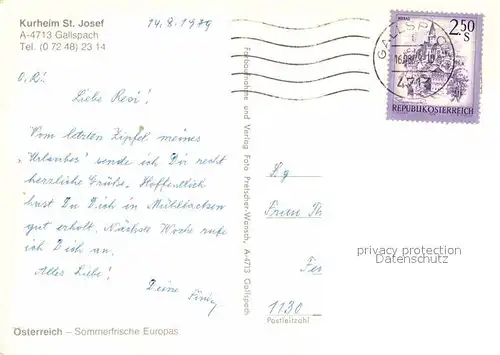 Kurheim St. Josef
A-4713 Gallspach
Tel. (0 72 48) 23 14
14.8.1979
Liebe Resi!
Vom letzten Zipfel meines
"Urlaubes" sende ich Dir recht
herzliche Grüße. Hoffentlich
hast Du Dich in Mühllacken
gut erholt. Nächste Woche rufe
ich Dich an.
Alles Liebe!
Deine
Österreich – Sommerfrische Europas
Farbaufnahme und Verlag Foto Pretscher-Wunsch, A-4713 Gallspach
2.50
S
REPUBLIK ÖSTERREICH
GALLSPACH
4713
Frau Th
1130
Postleitzahl
privacy protection
Datenschutz